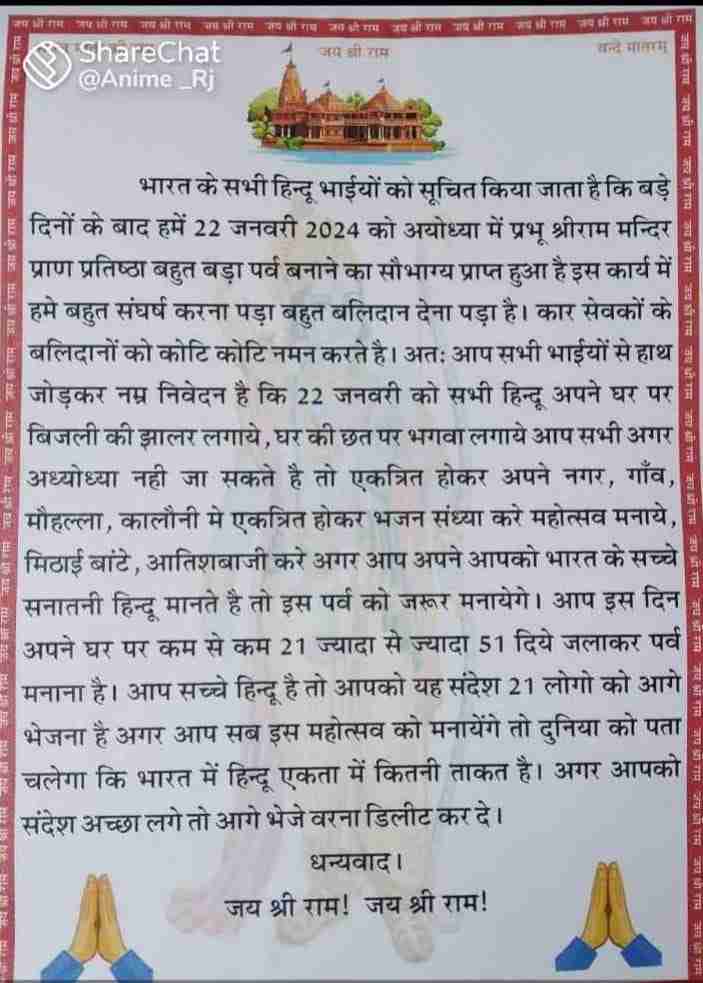 जय श्री राम जय श्री राम जय श्री राम जय श्री राम जय श्री राम जय श्री राम जय श्री राम जय श्री राम जय श्री राम जय श्री राम जय श्री राम
ShareChat
@Anime _Rj
जय श्री राम
वन्दे मातरम्
भारत के सभी हिन्दू भाईयों को सूचित किया जाता है कि बड़े
दिनों के बाद हमें 22 जनवरी 2024 को अयोध्या में प्रभू श्रीराम मन्दिर
प्राण प्रतिष्ठा बहुत बड़ा पर्व बनाने का सौभाग्य प्राप्त हुआ है इस कार्य में
हमे बहुत संघर्ष करना पड़ा बहुत बलिदान देना पड़ा है। कार सेवकों के
बलिदानों को कोटि कोटि नमन करते है। अतः आप सभी भाईयों से हाथ
जोड़कर नम्र निवेदन है कि 22 जनवरी को सभी हिन्दू अपने घर पर
बिजली की झालर लगाये, घर की छत पर भगवा लगाये आप सभी अगर
अध्योध्या नही जा सकते है तो एकत्रित होकर अपने नगर, गाँव,
मौहल्ला, कालौनी मे एकत्रित होकर भजन संध्या करे महोत्सव मनाये,
मिठाई बांटे, आतिशबाजी करे अगर आप अपने आपको भारत के सच्चे
सनातनी हिन्दू मानते है तो इस पर्व को जरूर मनायेगे। आप इस दिन
अपने घर पर कम से कम 21 ज्यादा से ज्यादा 51 दिये जलाकर पर्व
मनाना है। आप सच्चे हिन्दू है तो आपको यह संदेश 21 लोगो को आगे
भेजना है अगर आप सब इस महोत्सव को मनायेंगे तो दुनिया को पता
चलेगा कि भारत में हिन्दू एकता में कितनी ताकत है। अगर आपको
संदेश अच्छा लगे तो आगे भेजे वरना डिलीट कर दे।
धन्यवाद।
जय श्री राम! जय श्री राम!